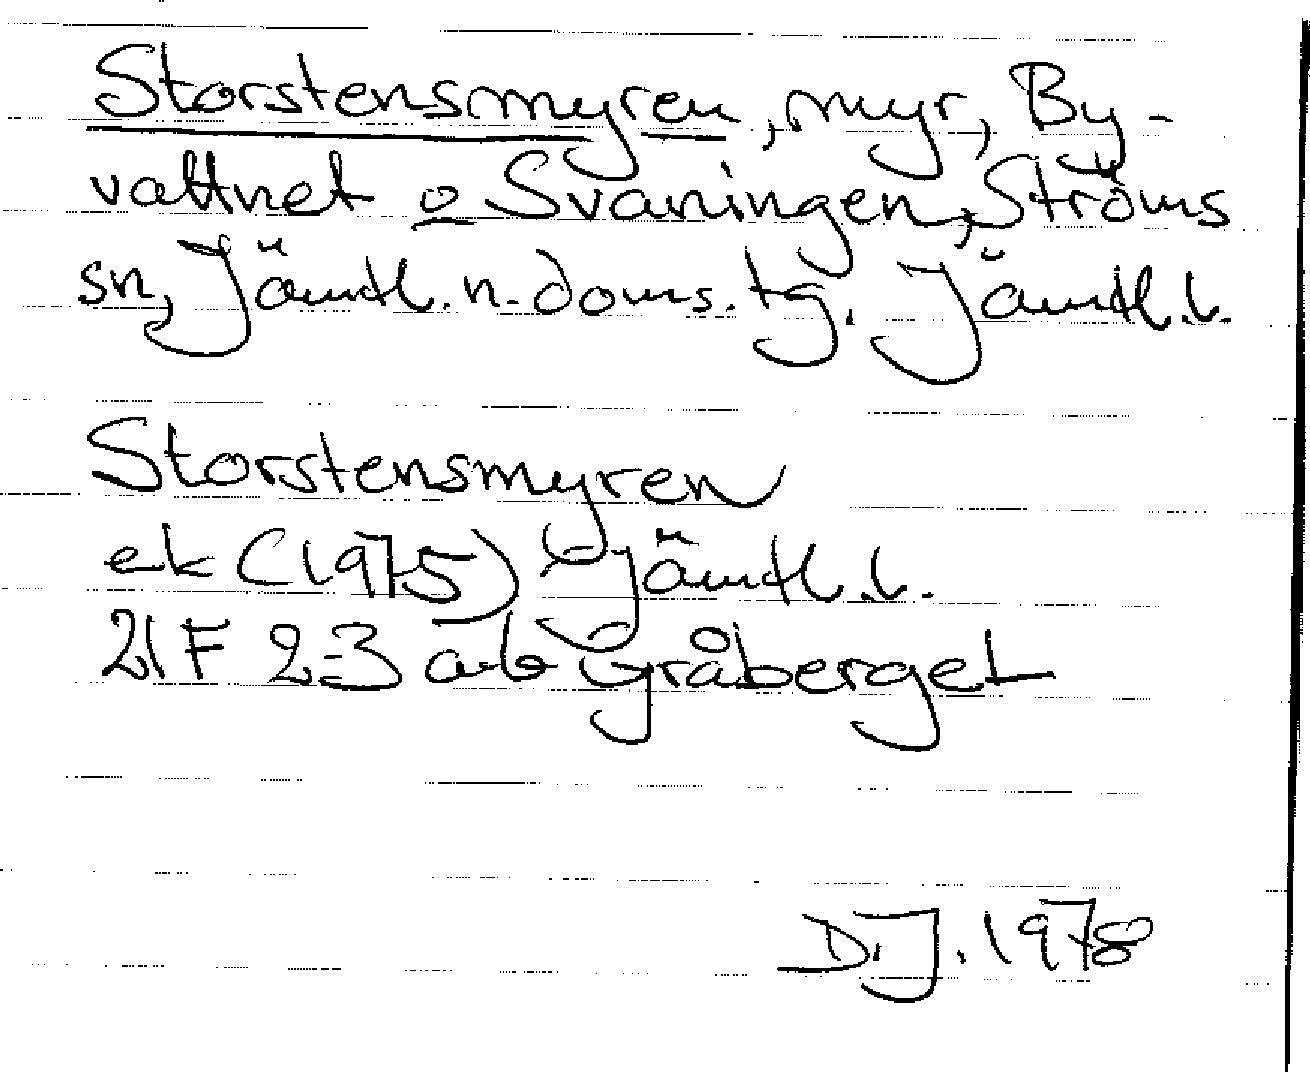 Storstensmyren, myr, By-
vattnet o Svaningen, Ströms
sn, Jämtl. n. doms. tg. Jämtl. l.
Storstensmyren
ek (1975) Jämtl. l.
21F 2-3 a-b Gråberget
D.J. 1978